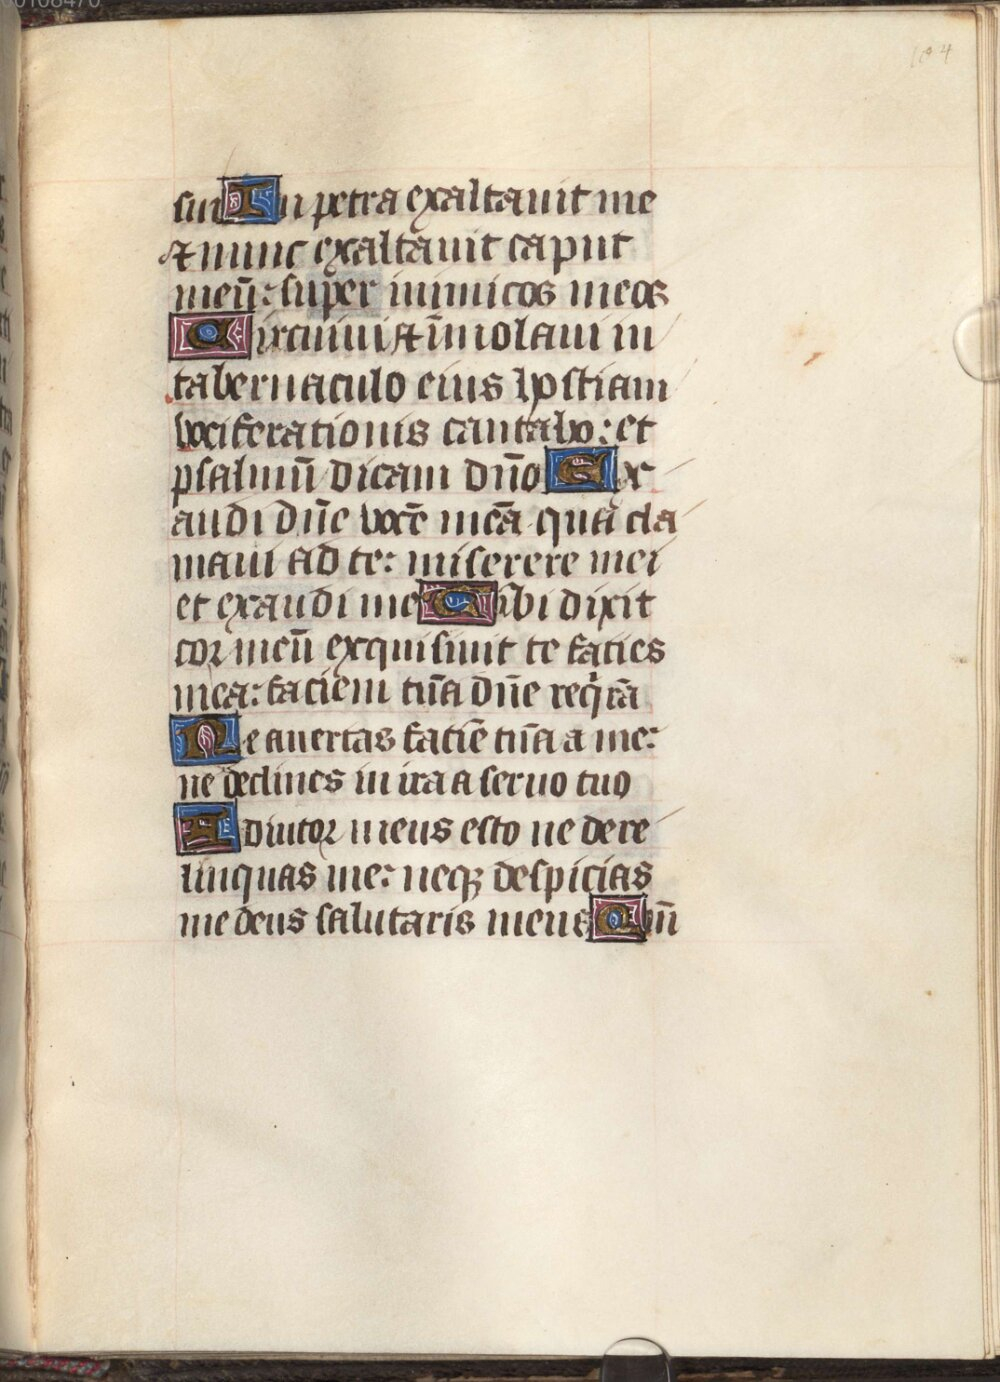 104
sui In petra exaltauit me
et nunc exaltauit caput
meū: super inimicos meos
Circuiui et īmolaui in
tabernaculo eius hostiam
vociferationis cantabo: et
psalmū dicam dn̄o Ex
audi dn̄e vocē meā qua cla
maui ad te: miserere mei
et exaudi me Tibi dixit
cor meū exquisiuit te facies
mea: faciem tuā dn̄e reqͥrā
Ne auertas faciē tuā a me:
ne declines in ira a seruo tuo
Adiutor meus esto ne dere
linquas me: neqꝫ despicias
me deus salutaris meus Qm̄